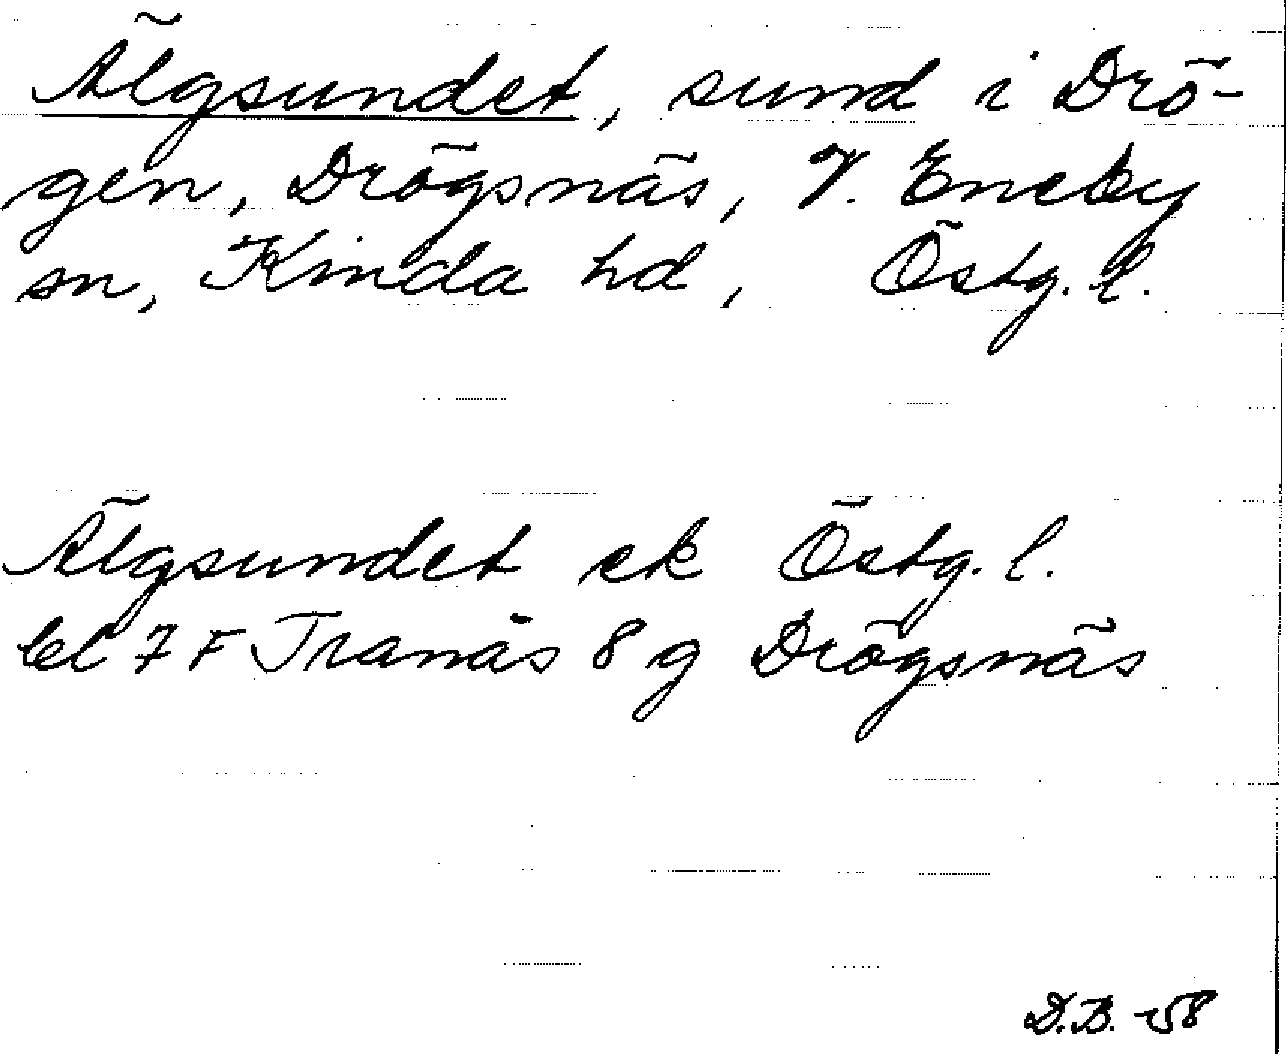 Älgsundet, sund i Drö-
gen, Drögsnäs, V. Eneby
sn, Kinda hd, Östg. l.
Älgsundet ek Östg. l.
bl 7 F Tranås 8 g Drögsnäs
D.B. -58